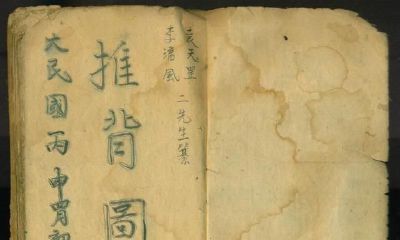 袁天罡
李淳風
二先生纂
推背圖
大民國丙申